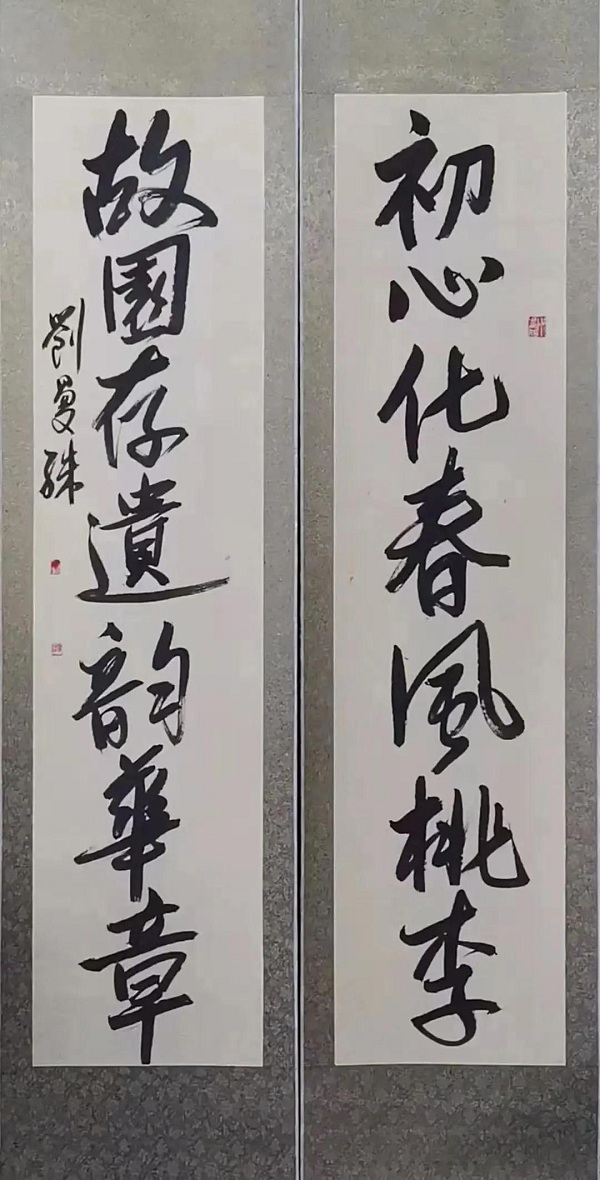 初心化春風桃李
故園存遺韵華章
劉曼殊